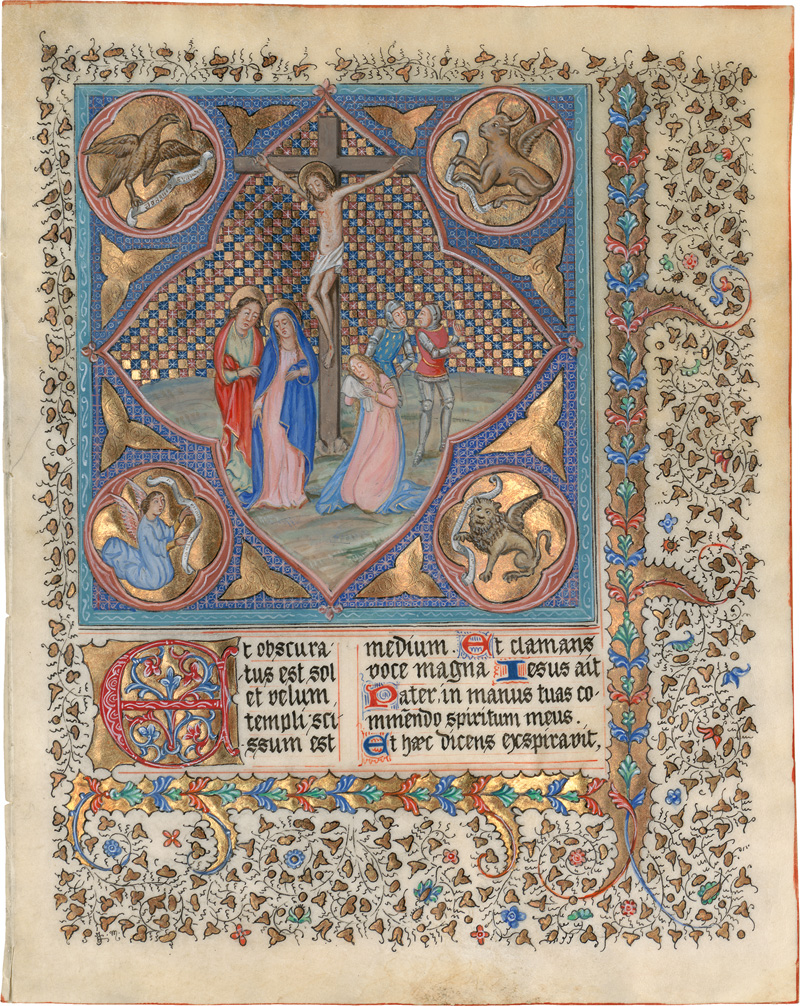 Et obscura
tus est sol
et velum
templi sci-
ssum est
medium. Et clamans
voce magna Iesus ait
Pater in manus tuas co-
mmendo spiritum meus.
Et hæc dicens exspiravit,